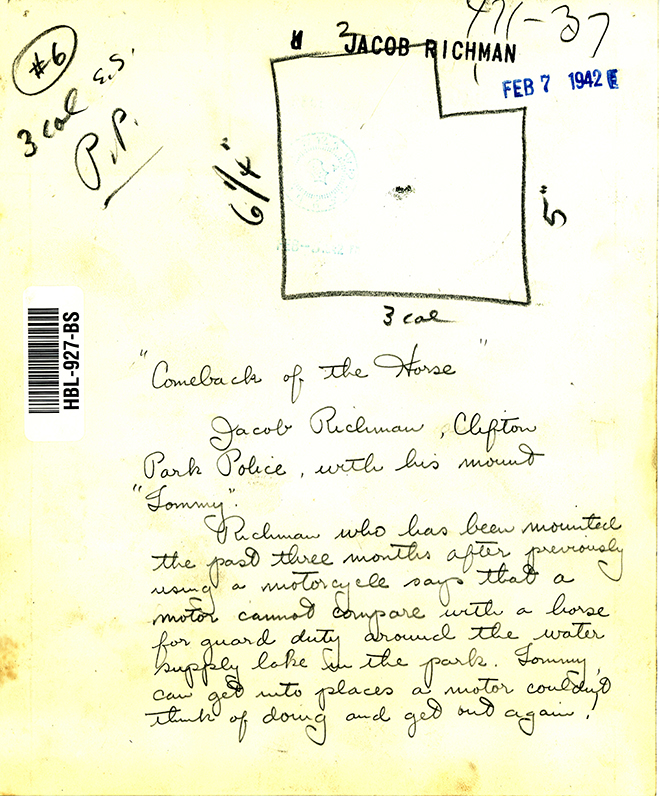 #6
3 col s.s.
P.P.
2
JACOB RICHMAN
471-37
FEB 7 1942 E
6 1/4"
5"
3 col
HBL-927-BS
"Comeback of the Horse"
Jacob Richman, Clifton
Park Police, with his mount
"Tommy".
Richman who has been mounted
the past three months after previously
using a motorcycle says that a
motor cannot compare with a horse
for guard duty around the water
supply lake in the park. Tommy,
can get into places a motor couldn't
think of doing and get out again!